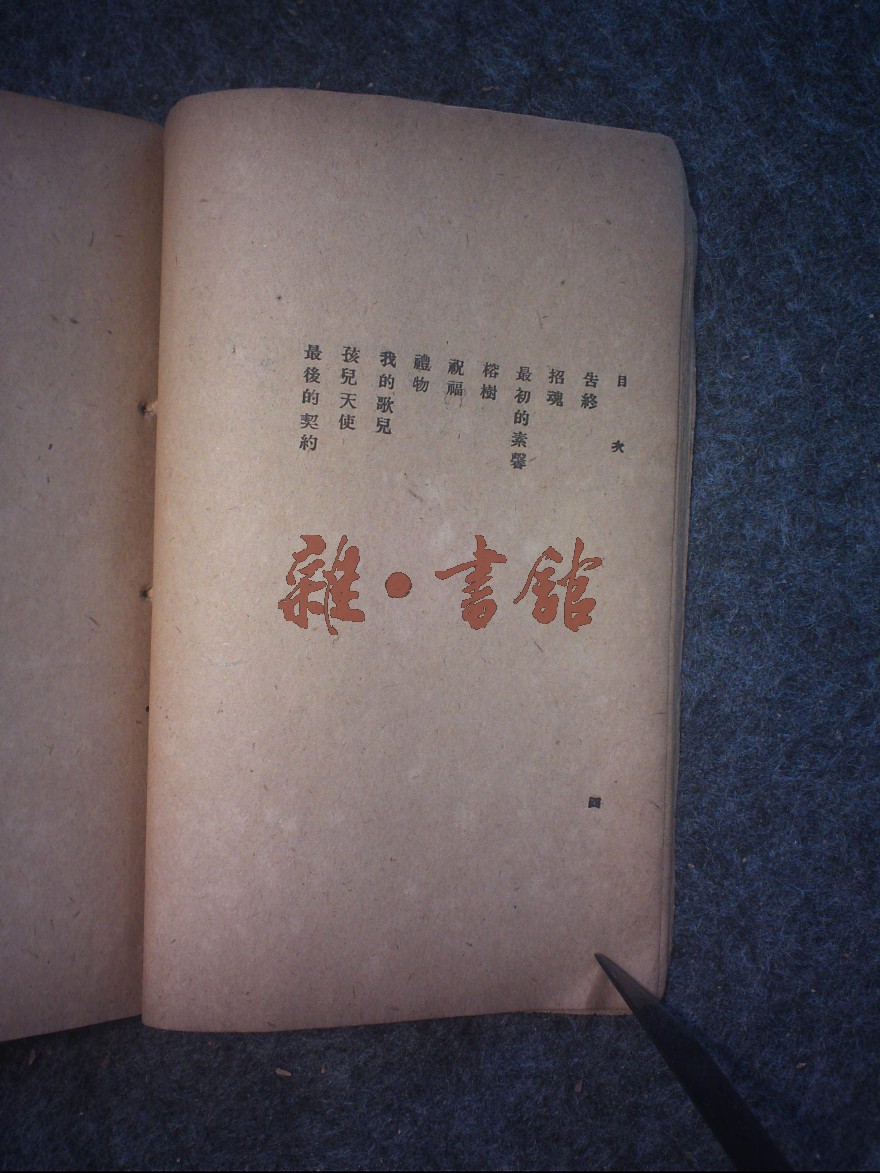 目次
告終
招魂
最初的素馨
榕樹
祝福
禮物
我的歌兒
孩兒天使
最後的契約
四
雜·書館